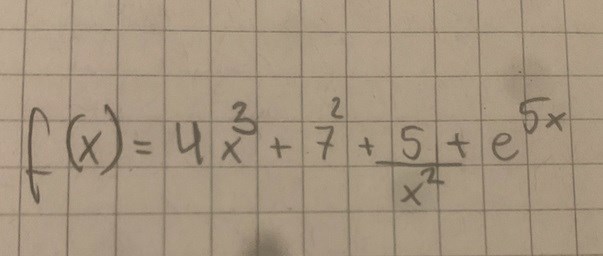 f(x) = 4x³ + 7² + 5/x² + e⁵ˣ